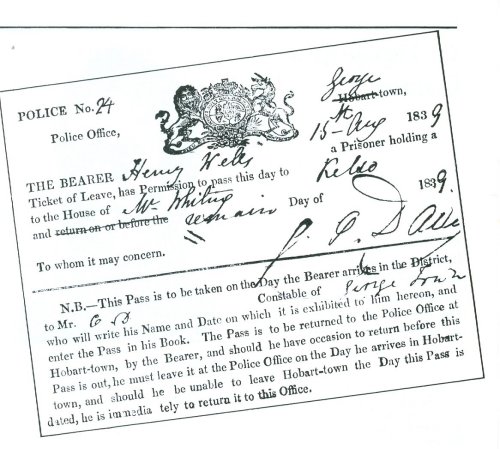 George
POLICE No. 24 Hobart-town,
Police Office, 15th Aug 1839
THE BEARER Henry Wells a Prisoner holding a
Ticket of Leave, has Permission to pass this day to Kelso
to the House of Mr Whiting
and return on or before the remain Day of 1839.
To whom it may concern.
N.B.—This Pass is to be taken on the Day the Bearer arrives in the District,
to Mr. Constable of George Town
who will write his Name and Date on which it is exhibited to him hereon, and
enter the Pass in his Book. The Pass is to be returned to the Police Office at
Hobart-town, by the Bearer, and should he have occasion to return before this
Pass is out, he must leave it at the Police Office on the Day he arrives in Hobart-
town, and should he be unable to leave Hobart-town the Day this Pass is
dated, he is immedia tely to return it to this Office.